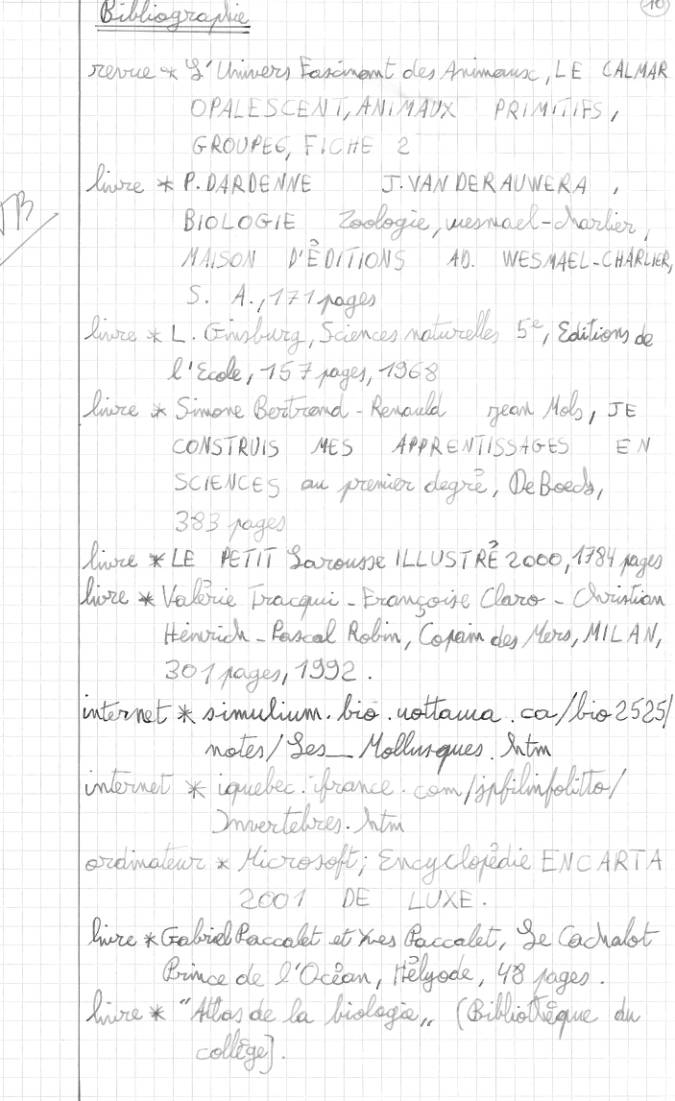 Bibliographie
10
revue * L'Univers Fascinant des Animaux, LE CALMAR
OPALESCENT, ANIMAUX PRIMITIFS,
GROUPE6, FICHE 2
livre * P. DARDENNE J. VAN DER AUWERA ,
BIOLOGIE Zoologie, wesmael-charlier,
MAISON D'ÉDITIONS AD. WESMAEL-CHARLIER,
S. A., 171 pages
TB
livre * L. Ginsburg, Sciences naturelles 5e, Editions de
l'Ecole, 157 pages, 1968
livre * Simone Bertrand - Renauld Jean Mols, JE
CONSTRUIS MES APPRENTISSAGES EN
SCIENCES au premier degré, De Boeck,
383 pages
livre * LE PETIT Larousse ILLUSTRÉ 2000, 1784 pages
livre * Valérie Tracqui - Françoise Claro - Christian
Heinrich - Pascal Robin, Copain des Mers, MILAN,
301 pages, 1992.
internet * simulium.bio.uottawa.ca/bio2525/
notes/Les_Mollusques.htm
internet * iquebec.ifrance.com/jpfilinfolitto/
Invertebres.htm
ordinateur * Microsoft; Encyclopédie ENCARTA
2001 DE LUXE.
livre * Gabriel Paccalet et Yves Paccalet, Le Cachalot
Prince de l'Océan, Hélyode, 48 pages.
livre * "Atlas de la biologie" (Bibliothèque du
collège].